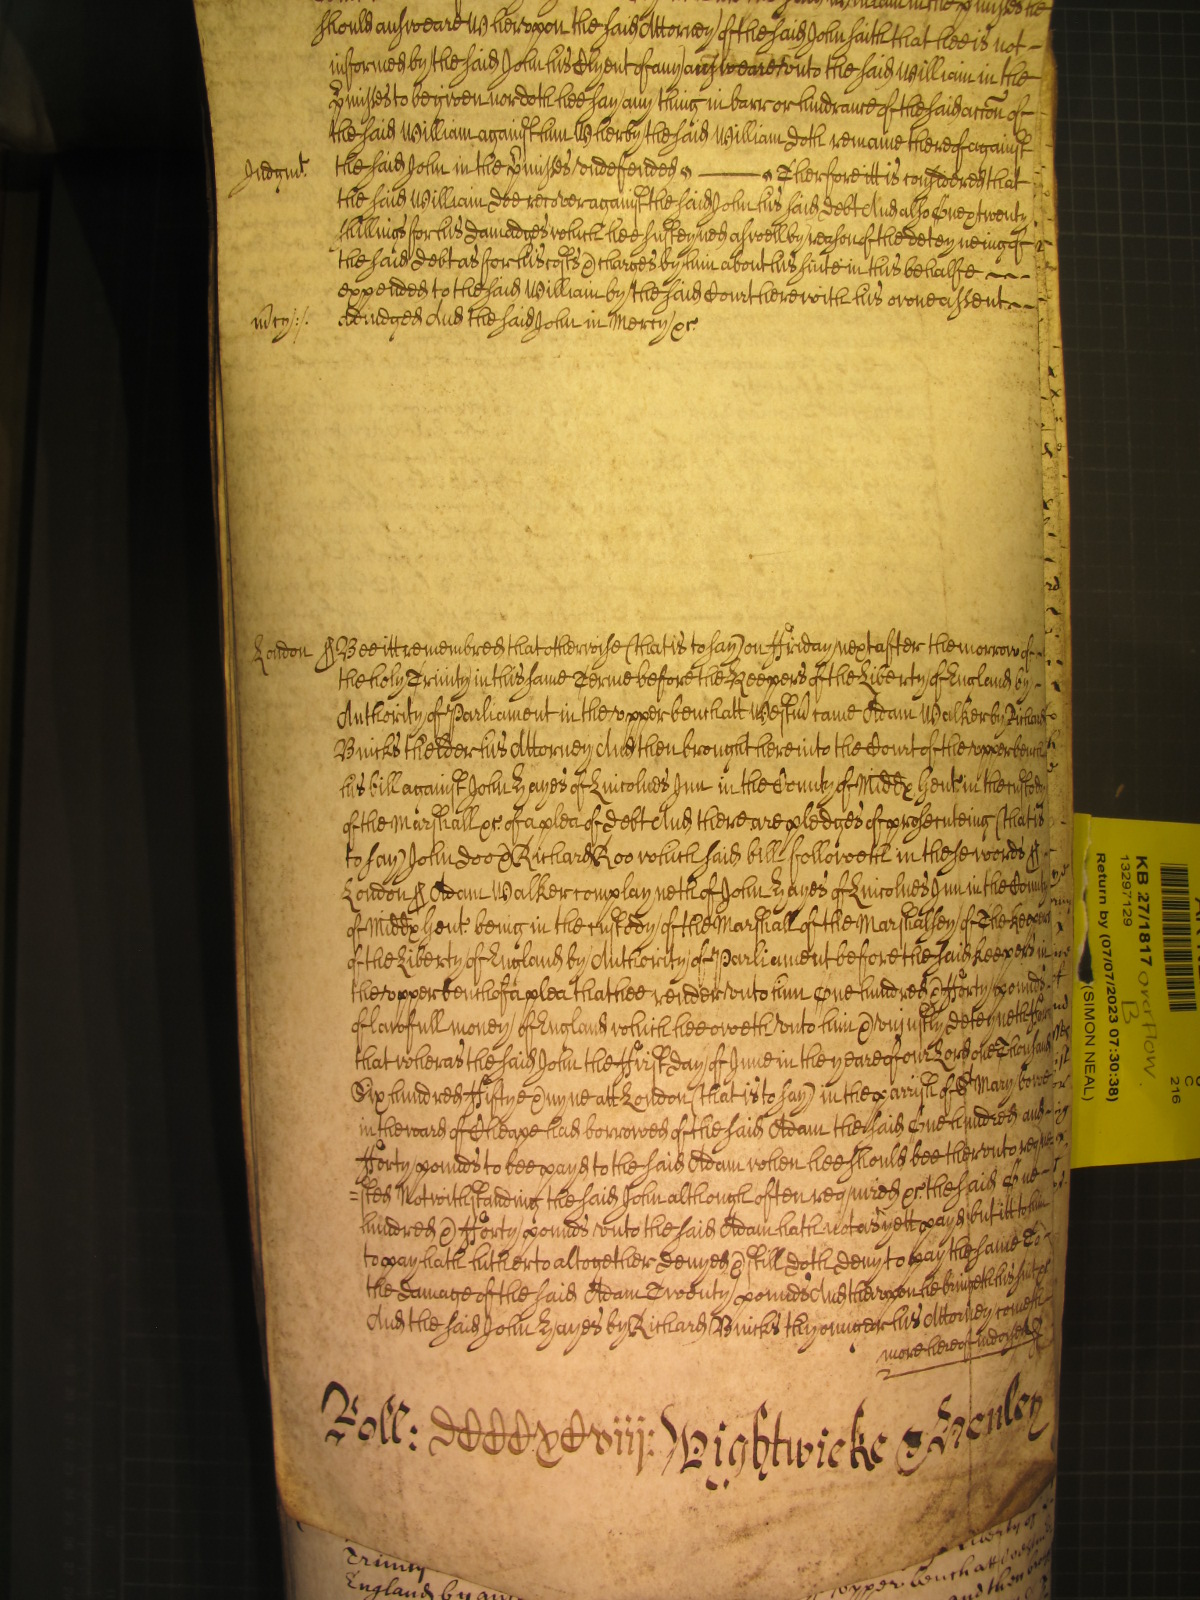 should answeare Whereupon the said Attorney of the said John saith that hee is not
informed by the said John his Clyent of any answeare unto the said William in the
p̄misses to be given nor doth hee say any thing in barr or hindrance of the said accōn of
the said William against him Wherby the said William doth remaine thereof against
Judgmt. the said John in the p̄misses undefended Therfore itt is considered that
the said William doe recover against the said John his said debt And also One & twenty
shillings for his damadges which hee susteyned aswell by reason of the deteyneing of
the said debt as for his costs & charges by him about his suite in this behalfe
expended to the said William by the said Court here with his owne assent
m̄cy/:/. adiudged And the said John in Mercy &c.
London ¶ Bee itt remembred that otherwise (that is to say) on ffriday next after the morrow of
the holy Trinity in this same Terme before the Keepers of the Liberty of England by
Authority of Parliament in the upper bench att Westm̄ came Adam Walker by Richard
Bricks the elder his Attorney And then brought here into the Court of the upper bench
his bill against John Hayes of Lincolnes Inn in the County of Middx Gent in the custody
of the Marshall &c. of a plea of debt And there are pledges of prosecuteing (that is
to say) John Doo & Richard Roo which said bill followeth in these words ¶
London ¶ Adam Walker complayneth of John Hayes of Lincolnes Inn in the County
of Middx Gent being in the custody of the Marshall of the Marshalsey of The Keepers
of the Liberty of England by Authority of Parliament before the said keepers in
the upper bench of a plea that hee render unto him One hundred & fforty pounds
of lawfull money of England which hee oweth unto him & uniustly deteyneth ffor
that wheras the said John the ffirst day of June in the yeare of our Lord one Thousand
Six hundred ffiftye & nyne att London (that is to say) in the parrish of St Mary bowe
in the ward of Cheape had borrowed of the said Adam the said One hundred and
fforty pounds to bee payd to the said Adam when hee should bee therunto reque
=sted Notwithstanding the said John although often required &c. the said One
hundred & fforty pounds unto the said Adam hath not as yett payd but itt to him
to pay hath hitherto altogether denyed & still doth deny to pay the same To
the damage of the said Adam Twenty pounds And therupon he bringeth his suit &c
And the said John Hayes by Richard Bricks the younger his Attorney cometh
more hereof indorsed
Roll: dccccxcviij: Wightwicke & Henley
Trinity
England by
upper bench att
and then
KB 27/1817 overflow
B
13297129
Return by (07/07/2023 07:30:38)
(SIMON NEAL)
216